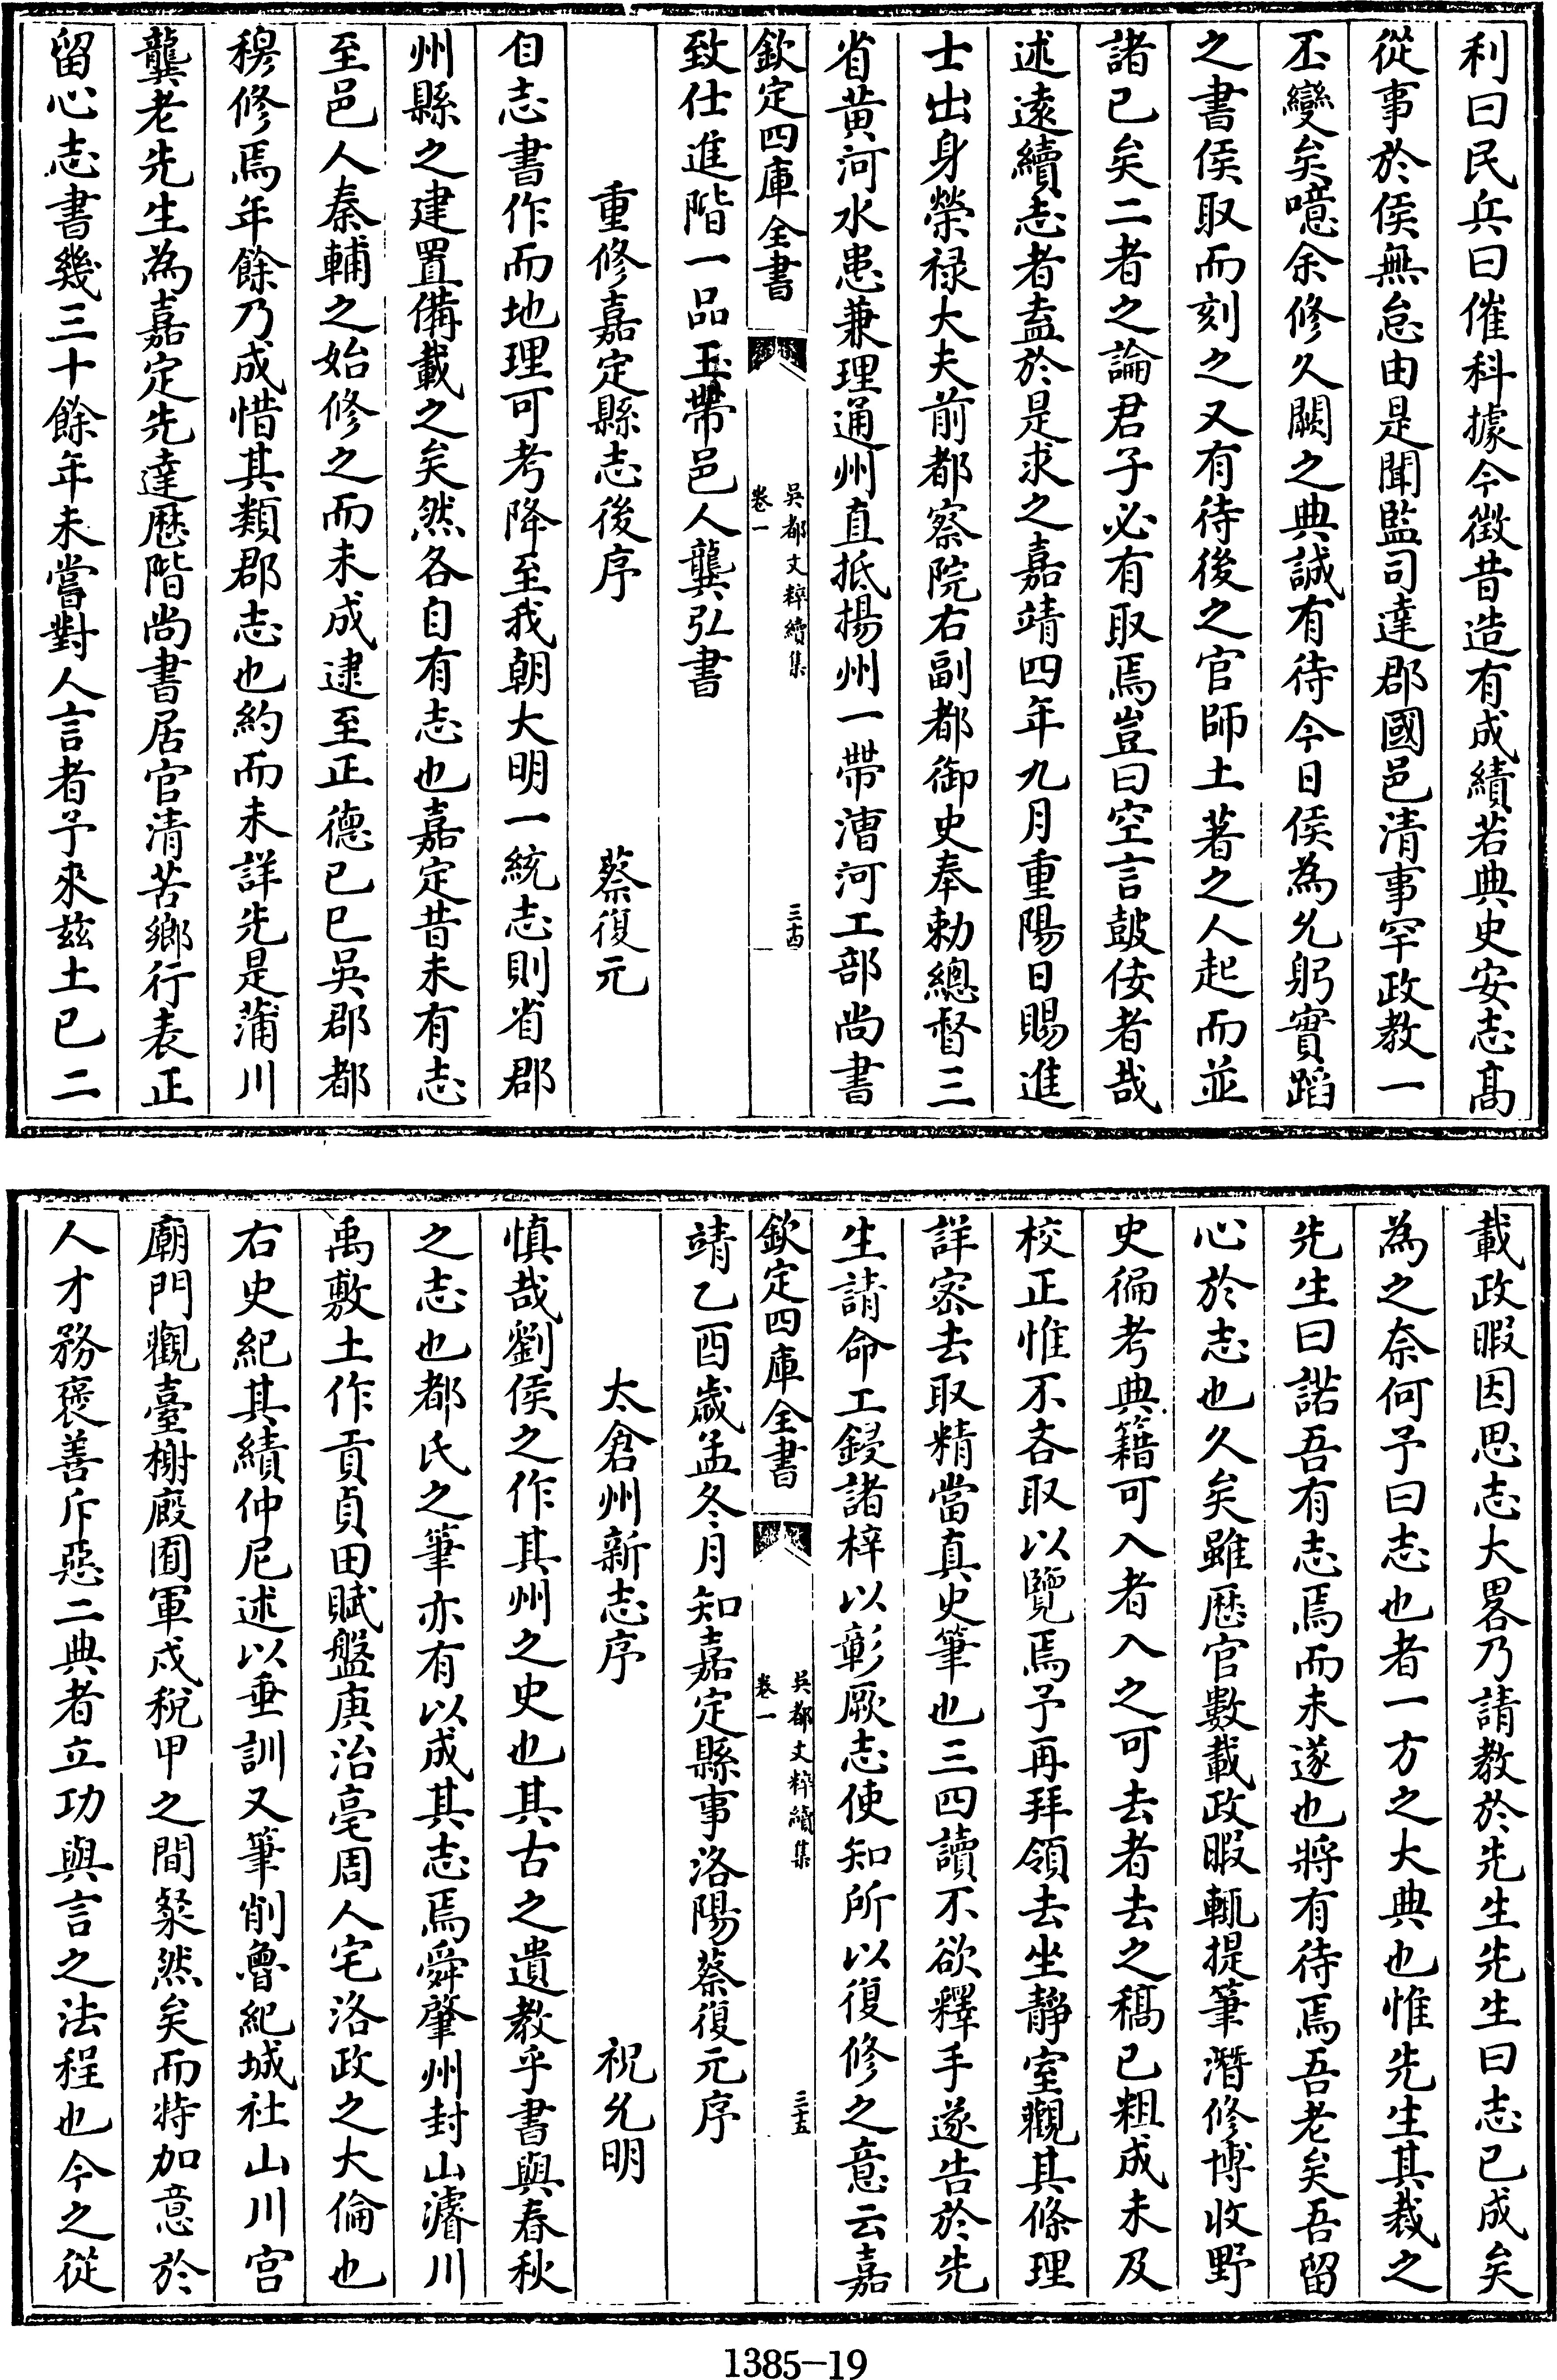 利曰民兵曰催科據今徴昔造有成績若典史安志髙
從事於侯無怠由是聞監司達郡國邑清事罕政教一
丕變矣噫余修久闕之典誠有待今日侯為允躬實蹈
之書侯取而刻之又有待後之官師土著之人起而並
諸已矣二者之論君子必有取焉豈曰空言皷侫者哉
述遠續志者盍於是求之嘉靖四年九月重陽日賜進
士出身榮禄大夫前都察院右副都御史奉勅總督三
省黄河水患兼理通州直抵揚州一帶漕河工部尚書
欽定四庫全書
吳都文粹續集
卷一
三十四
致仕進階一品玉帶邑人龔弘書
重修嘉定縣志後序 蔡復元
自志書作而地理可考降至我朝大明一統志則省郡
州縣之建置備載之矣然各自有志也嘉定昔未有志
至邑人秦輔之始修之而未成逮至正德已巳吳郡都
穆修焉年餘乃成惜其類郡志也約而未詳先是蒲川
龔老先生為嘉定先達歴階尚書居官清苦鄉行表正
留心志書幾三十餘年未嘗對人言者予來兹土已二
載政暇因思志大畧乃請教於先生先生曰志已成矣
為之奈何予曰志也者一方之大典也惟先生其裁之
先生曰諾吾有志焉而未遂也將有待焉吾老矣吾留
心於志也久矣雖歴官數載政暇輒提筆潛修博收野
史徧考典籍可入者入之可去者去之稿已粗成未及
校正惟不吝取以覽焉予再拜領去坐靜室觀其條理
詳宻去取精當真史筆也三四讀不欲釋手遂告於先
生請命工鋟諸梓以彰厥志使知所以復修之意云嘉
欽定四庫全書
吳都文粹續集
卷一
三十五
靖乙酉歲孟冬月知嘉定縣事洛陽蔡復元序
太倉州新志序 祝允明
慎哉劉侯之作其州之史也其古之遺教乎書與春秋
之志也都氏之筆亦有以成其志焉舜肇州封山濬川
禹敷土作貢貞田賦盤庚治亳周人宅洛政之大倫也
右史紀其績仲尼述以垂訓又筆削魯紀城社山川宫
廟門觀臺榭廄囿軍戍稅甲之間粲然矣而特加意於
人才務褒善斥惡二典者立功與言之法程也今之從
1385-19